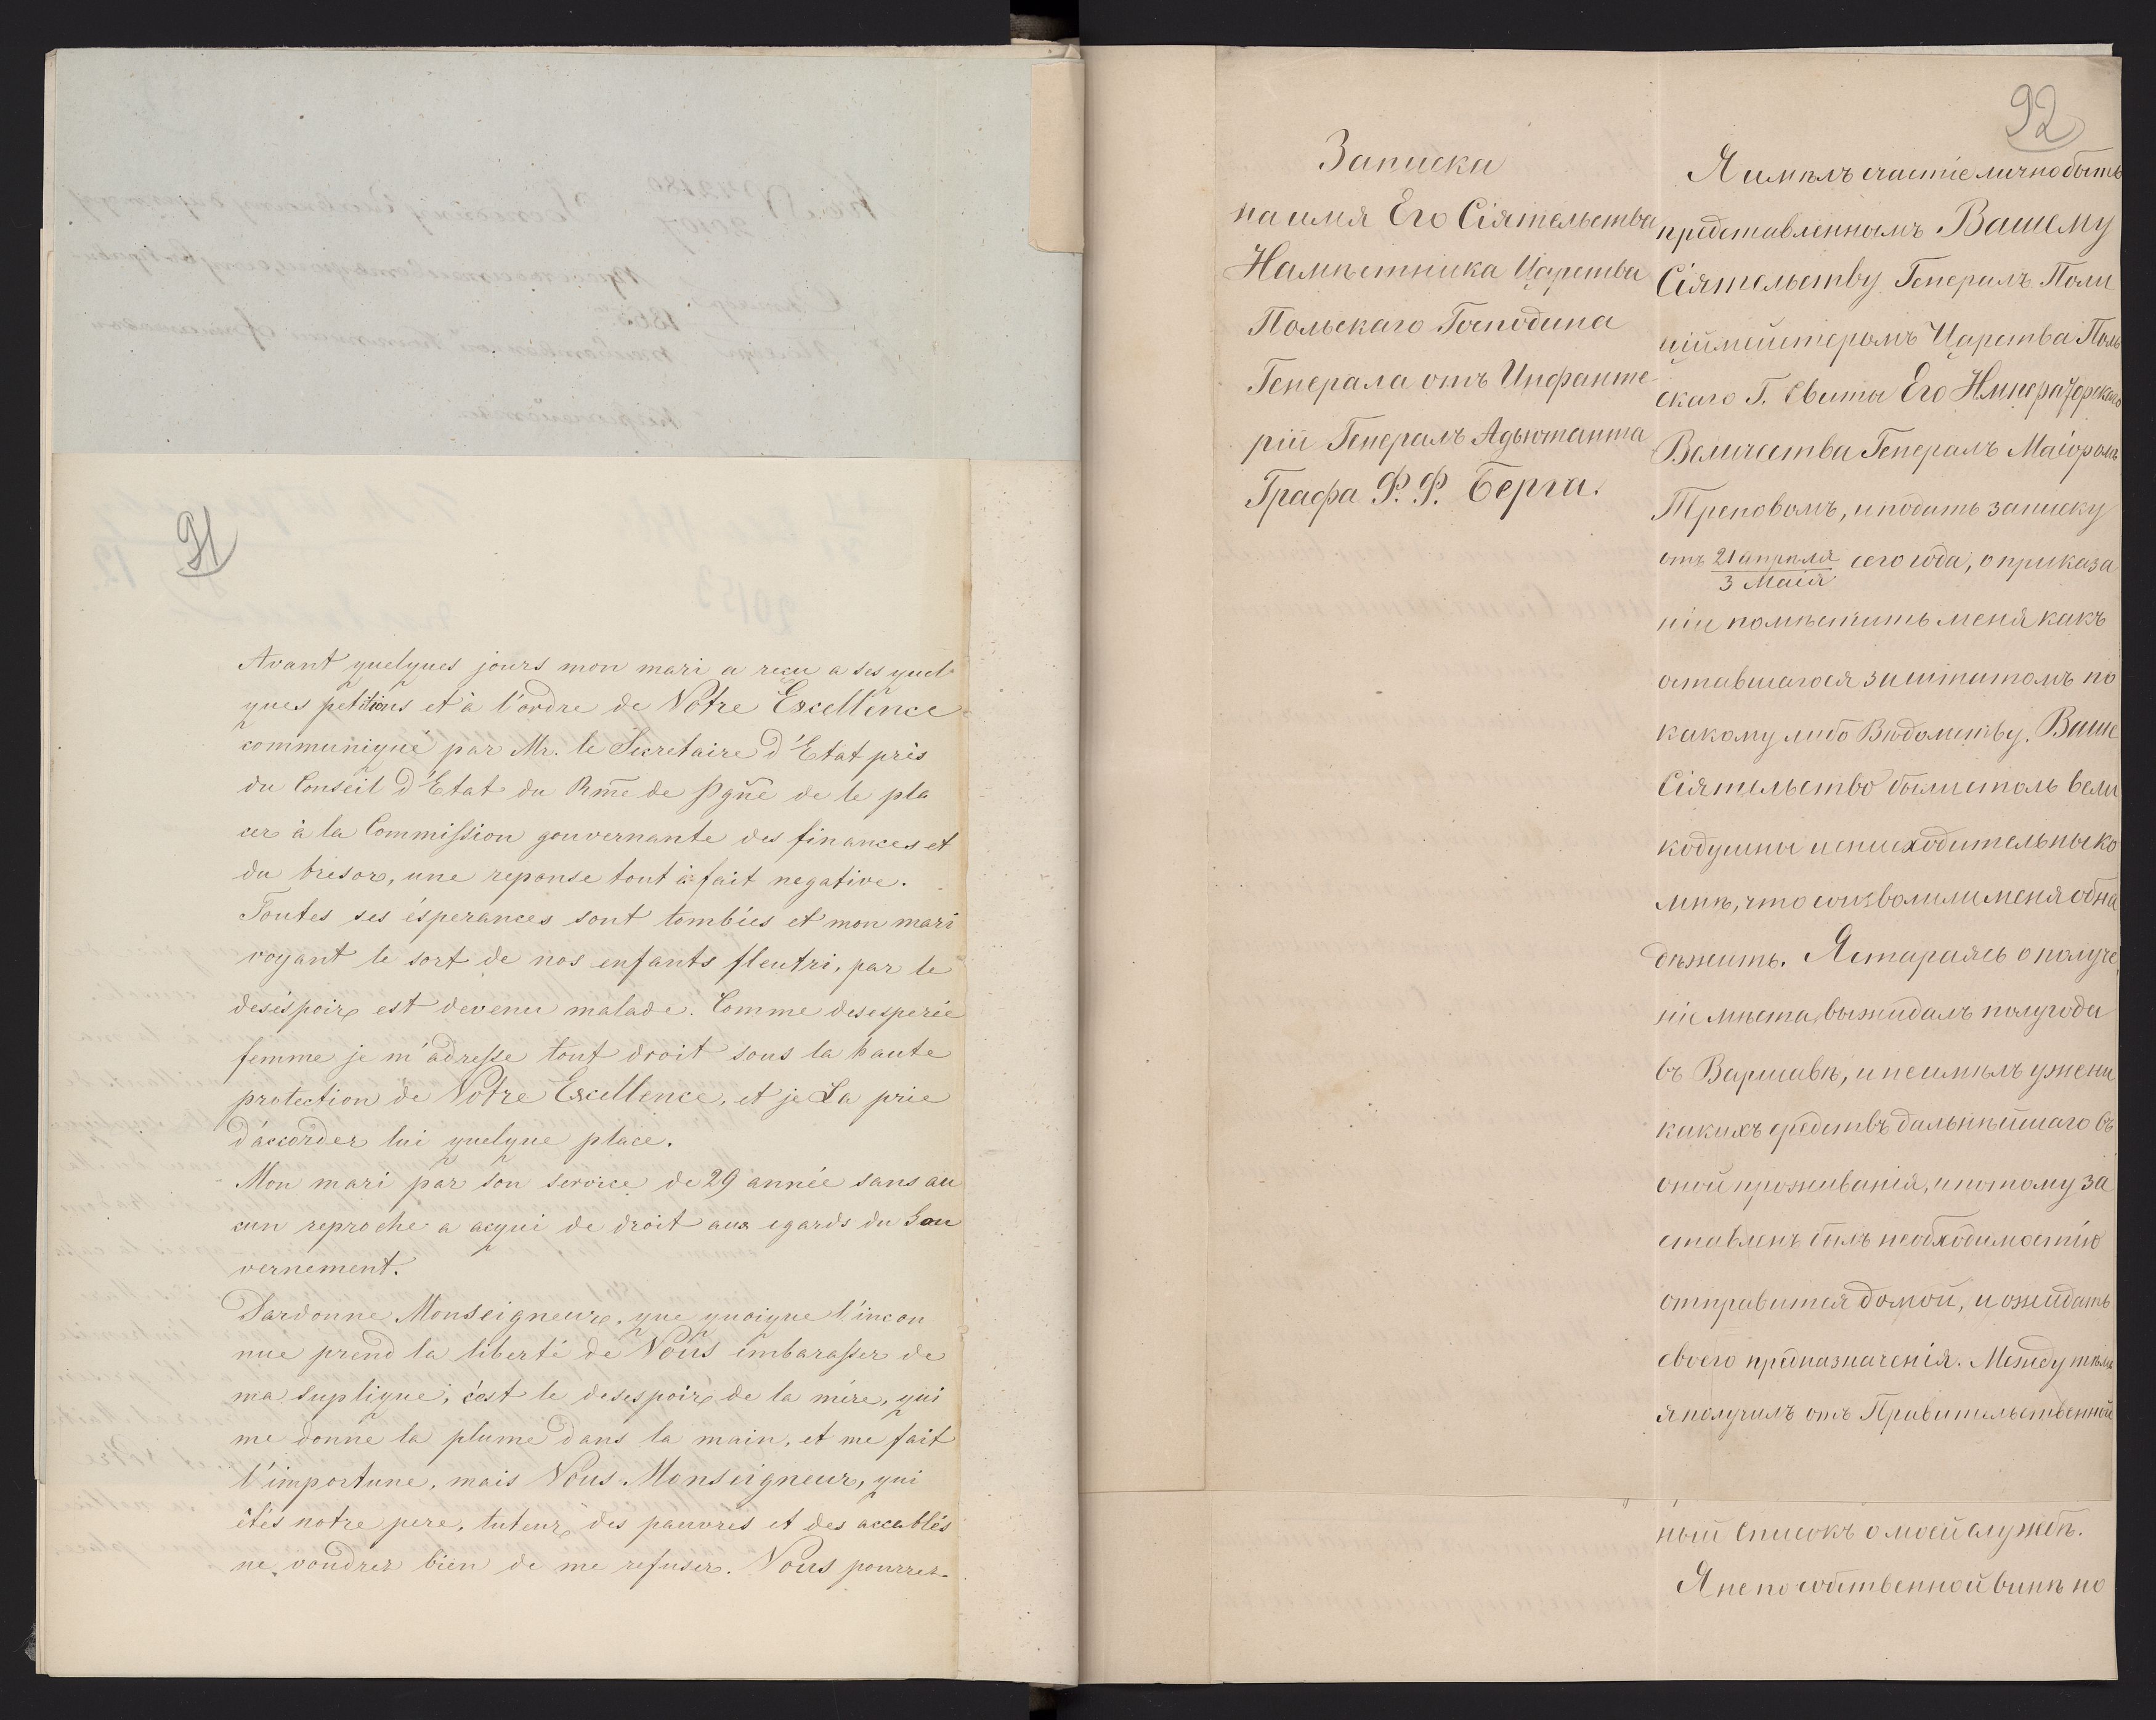 91
Avant quelques jours mon mari a reçu a ses quel
ques petitions et à l'ordre de Votre Excellence
communiqué par Mr. le Secretaire d'Etat près
du Conseil d'Etat du Rme de Pgne de le pla
cer à la Commission gouvernante des finances et
du tresor, une reponse tout à fait negative.
Toutes ses ésperances sont tombées et mon mari
voyant le sort de nos enfants fleutri, par le
deséspoir est devenu malade. Comme desesperée
femme je m'adresse tout droit sous la haute
protection de Votre Excellence, et je La prie
d'accorder lui quelque place.
Mon mari par son service de 29 année sans au
cun reproche a acqui de droit aux egards du Gou
vernement.
Pardonne Monseigneur, que quoique l'incon
nue prend la liberté de Vous embarasser de
ma suplique, c'est le desespoir de la mére, qui
me donne la plume dans la main, et me fait
l'importune, mais Vous Monseigneur, qui
êtés notre pere, tuteur des pauvres et des accablés
ne voudrez bien de me refuser. Vous pourrez
92
Записка
на имя Его Сіятельства
Намѣстника Царства
Польскаго Господина
Генерала отъ Инфанте
ріи Генералъ Адьютанта
Графа Ф. Ф. Берга.
Я имѣлъ счастіе лично быть
представленнымъ Вашему
Сіятельству Генералъ Поли
ціймейстеромъ Царства Поль
скаго Г. Свиты Его Императорскаго
Величества Генералъ Маіоромъ
Треповымъ, и подать записку
отъ 21 апрѣля / 3 Маія сего года, о приказа
ніи помѣстить меня какъ
оставшагося за штатомъ по
какому либо Вѣдомству. Ваше
Сіятельство были столь вели
кодушны и снисходительны ко
мнѣ, что соизволили меня обна
дѣжить. Я стараясь о получе
ніе мѣста, выжидалъ полугода
въ Варшавѣ, и не имѣлъ уже ни
какихъ средствъ дальнѣйшаго въ
оной проживанія, и потому за
ставленъ былъ необходимостію
отправится домой, и ожидать
своего предназначенія. Между тѣмъ
я получилъ отъ Правительственной
ный списокъ о моей службѣ.
Я не по собственной винѣ но